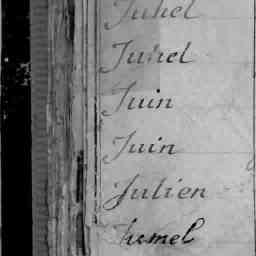 Juhel
Juhel
Juin
Juin
Julien
Jumel